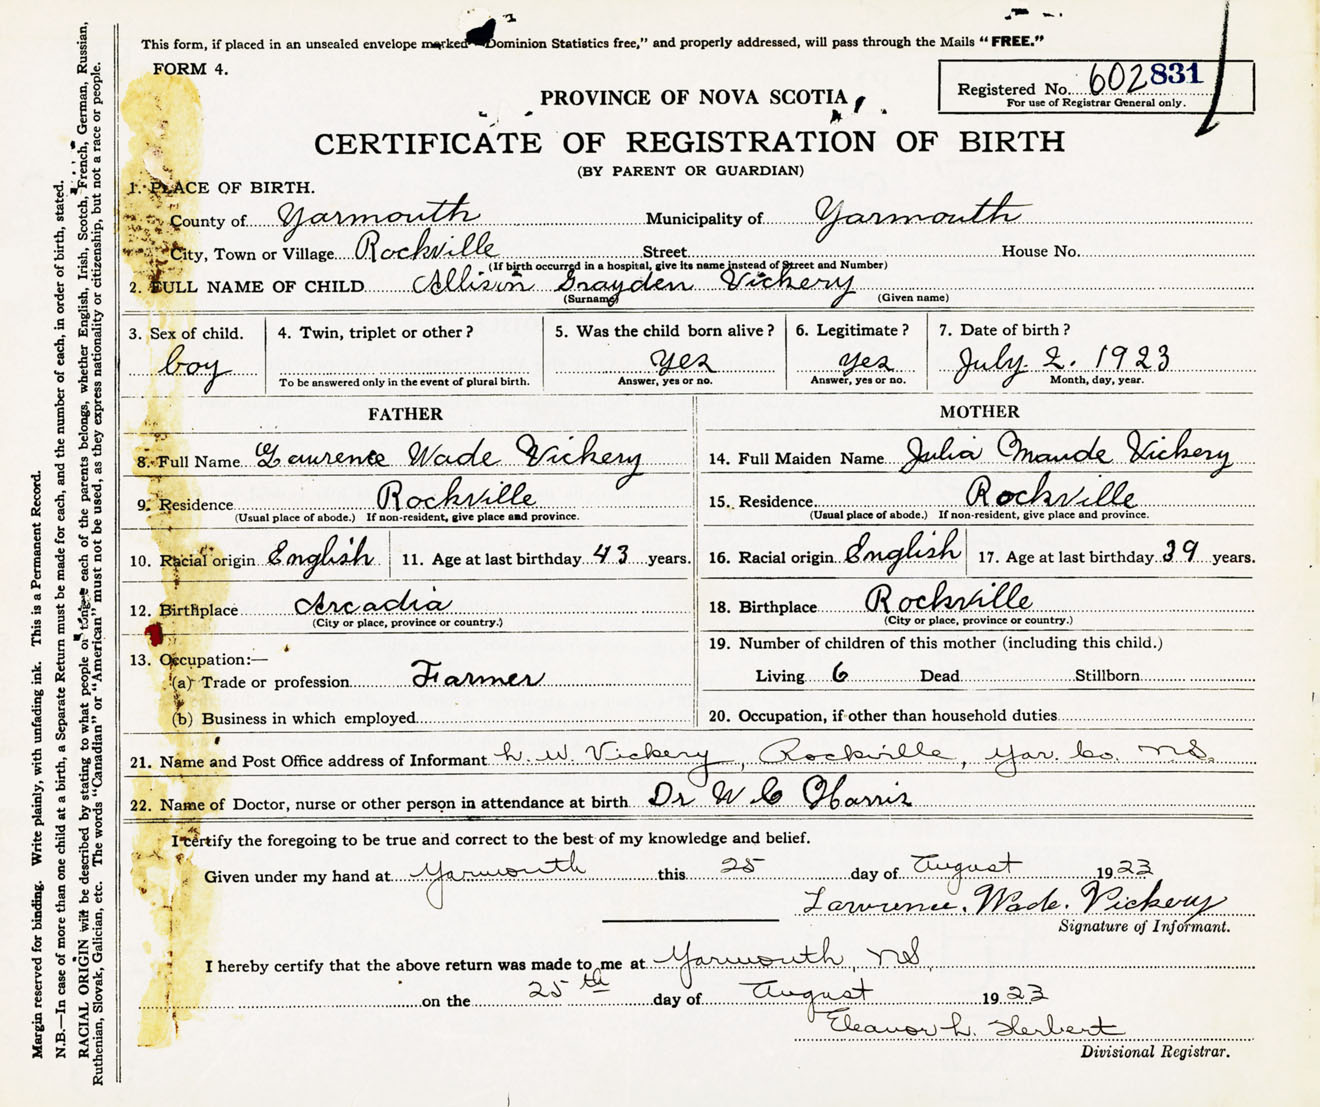 This form, if placed in an unsealed envelope marked "Dominion Statistics free," and properly addressed, will pass through the Mails "FREE."
FORM 4.
Registered No. 602831
For use of Registrar General only.
PROVINCE OF NOVA SCOTIA
CERTIFICATE OF REGISTRATION OF BIRTH
(BY PARENT OR GUARDIAN)
1. PLACE OF BIRTH.
County of Yarmouth Municipality of Yarmouth
City, Town or Village Rockville Street House No.
(If birth occurred in a hospital, give its name instead of Street and Number)
2. FULL NAME OF CHILD Allison Grayden Vickery
(Surname) (Given name)
3. Sex of child. 4. Twin, triplet or other? 5. Was the child born alive? 6. Legitimate? 7. Date of birth?
boy yes yes July 2. 1923
To be answered only in the event of plural birth. Answer, yes or no. Answer, yes or no. Month, day, year.
FATHER MOTHER
8. Full Name Lawrence Wade Vickery 14. Full Maiden Name Julia Maude Vickery
9. Residence Rockville 15. Residence Rockville
(Usual place of abode.) If non-resident, give place and province. (Usual place of abode.) If non-resident, give place and province.
10. Racial origin English 11. Age at last birthday 43 years. 16. Racial origin English 17. Age at last birthday 39 years.
12. Birthplace Arcadia 18. Birthplace Rockville
(City or place, province or country.) (City or place, province or country.)
19. Number of children of this mother (including this child.)
13. Occupation:—
(a) Trade or profession Farmer Living 6 Dead Stillborn
(b) Business in which employed 20. Occupation, if other than household duties
21. Name and Post Office address of Informant L. W. Vickery, Rockville, Yar. Co. N.S.
22. Name of Doctor, nurse or other person in attendance at birth Dr W C Harris
I certify the foregoing to be true and correct to the best of my knowledge and belief.
Given under my hand at Yarmouth this 25 day of August 1923
Lawrence. Wade. Vickery
Signature of Informant.
I hereby certify that the above return was made to me at Yarmouth, N.S.
on the 25th day of August 1923
Eleanor L. Herbert
Divisional Registrar.
Margin reserved for binding. Write plainly, with unfading ink. This is a Permanent Record.
N.B.—In case of more than one child at a birth, a Separate Return must be made for each, and the number of each, in order of birth, stated.
RACIAL ORIGIN will be described by stating to what people or tongue each of the parents belongs, whether English, Irish, Scotch, French, German, Russian,
Ruthenian, Slovak, Galician, etc. The words "Canadian" or "American" must not be used, as they express nationality or citizenship, but not a race or people.